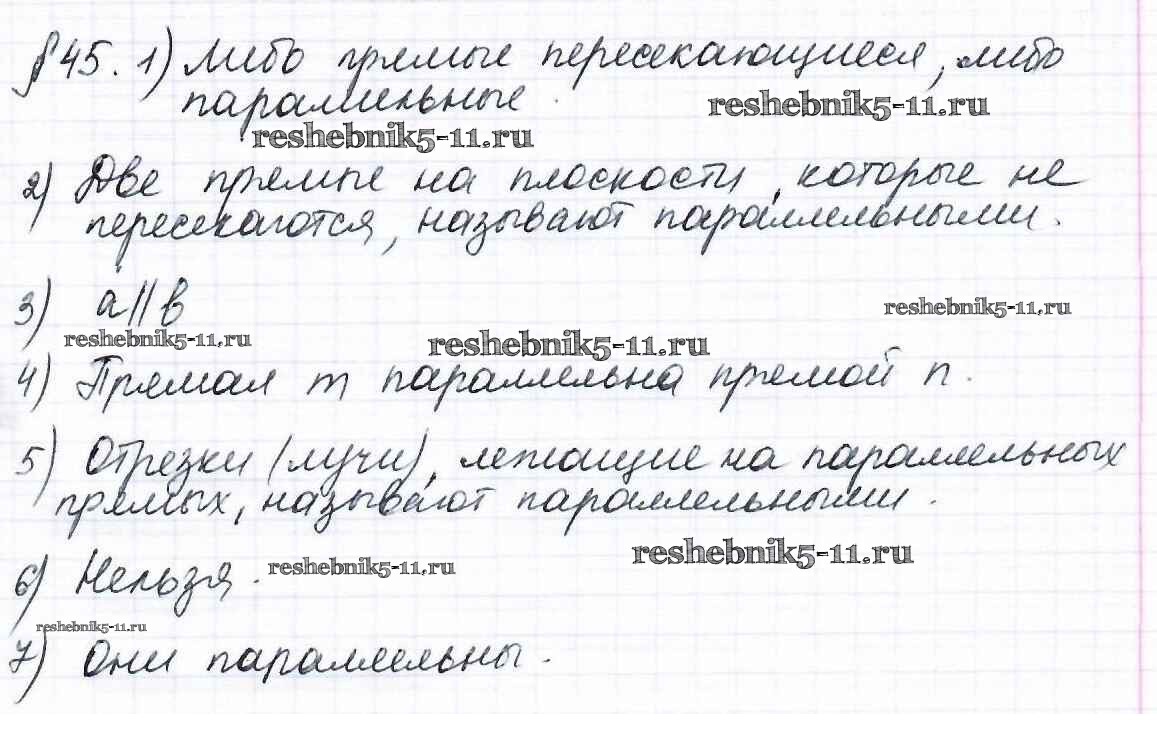 §45. 1) Либо прямые пересекающиеся, либо
параллельные.
reshebnik5-11.ru
reshebnik5-11.ru
2) Две прямые на плоскости, которые не
пересекаются, называют параллельными.
3) a || b
reshebnik5-11.ru
reshebnik5-11.ru
reshebnik5-11.ru
4) Прямая m параллельна прямой n.
5) Отрезки (лучи), лежащие на параллельных
прямых, называют параллельными.
6) Нельзя.
reshebnik5-11.ru
reshebnik5-11.ru
reshebnik5-11.ru
7) Они параллельны.